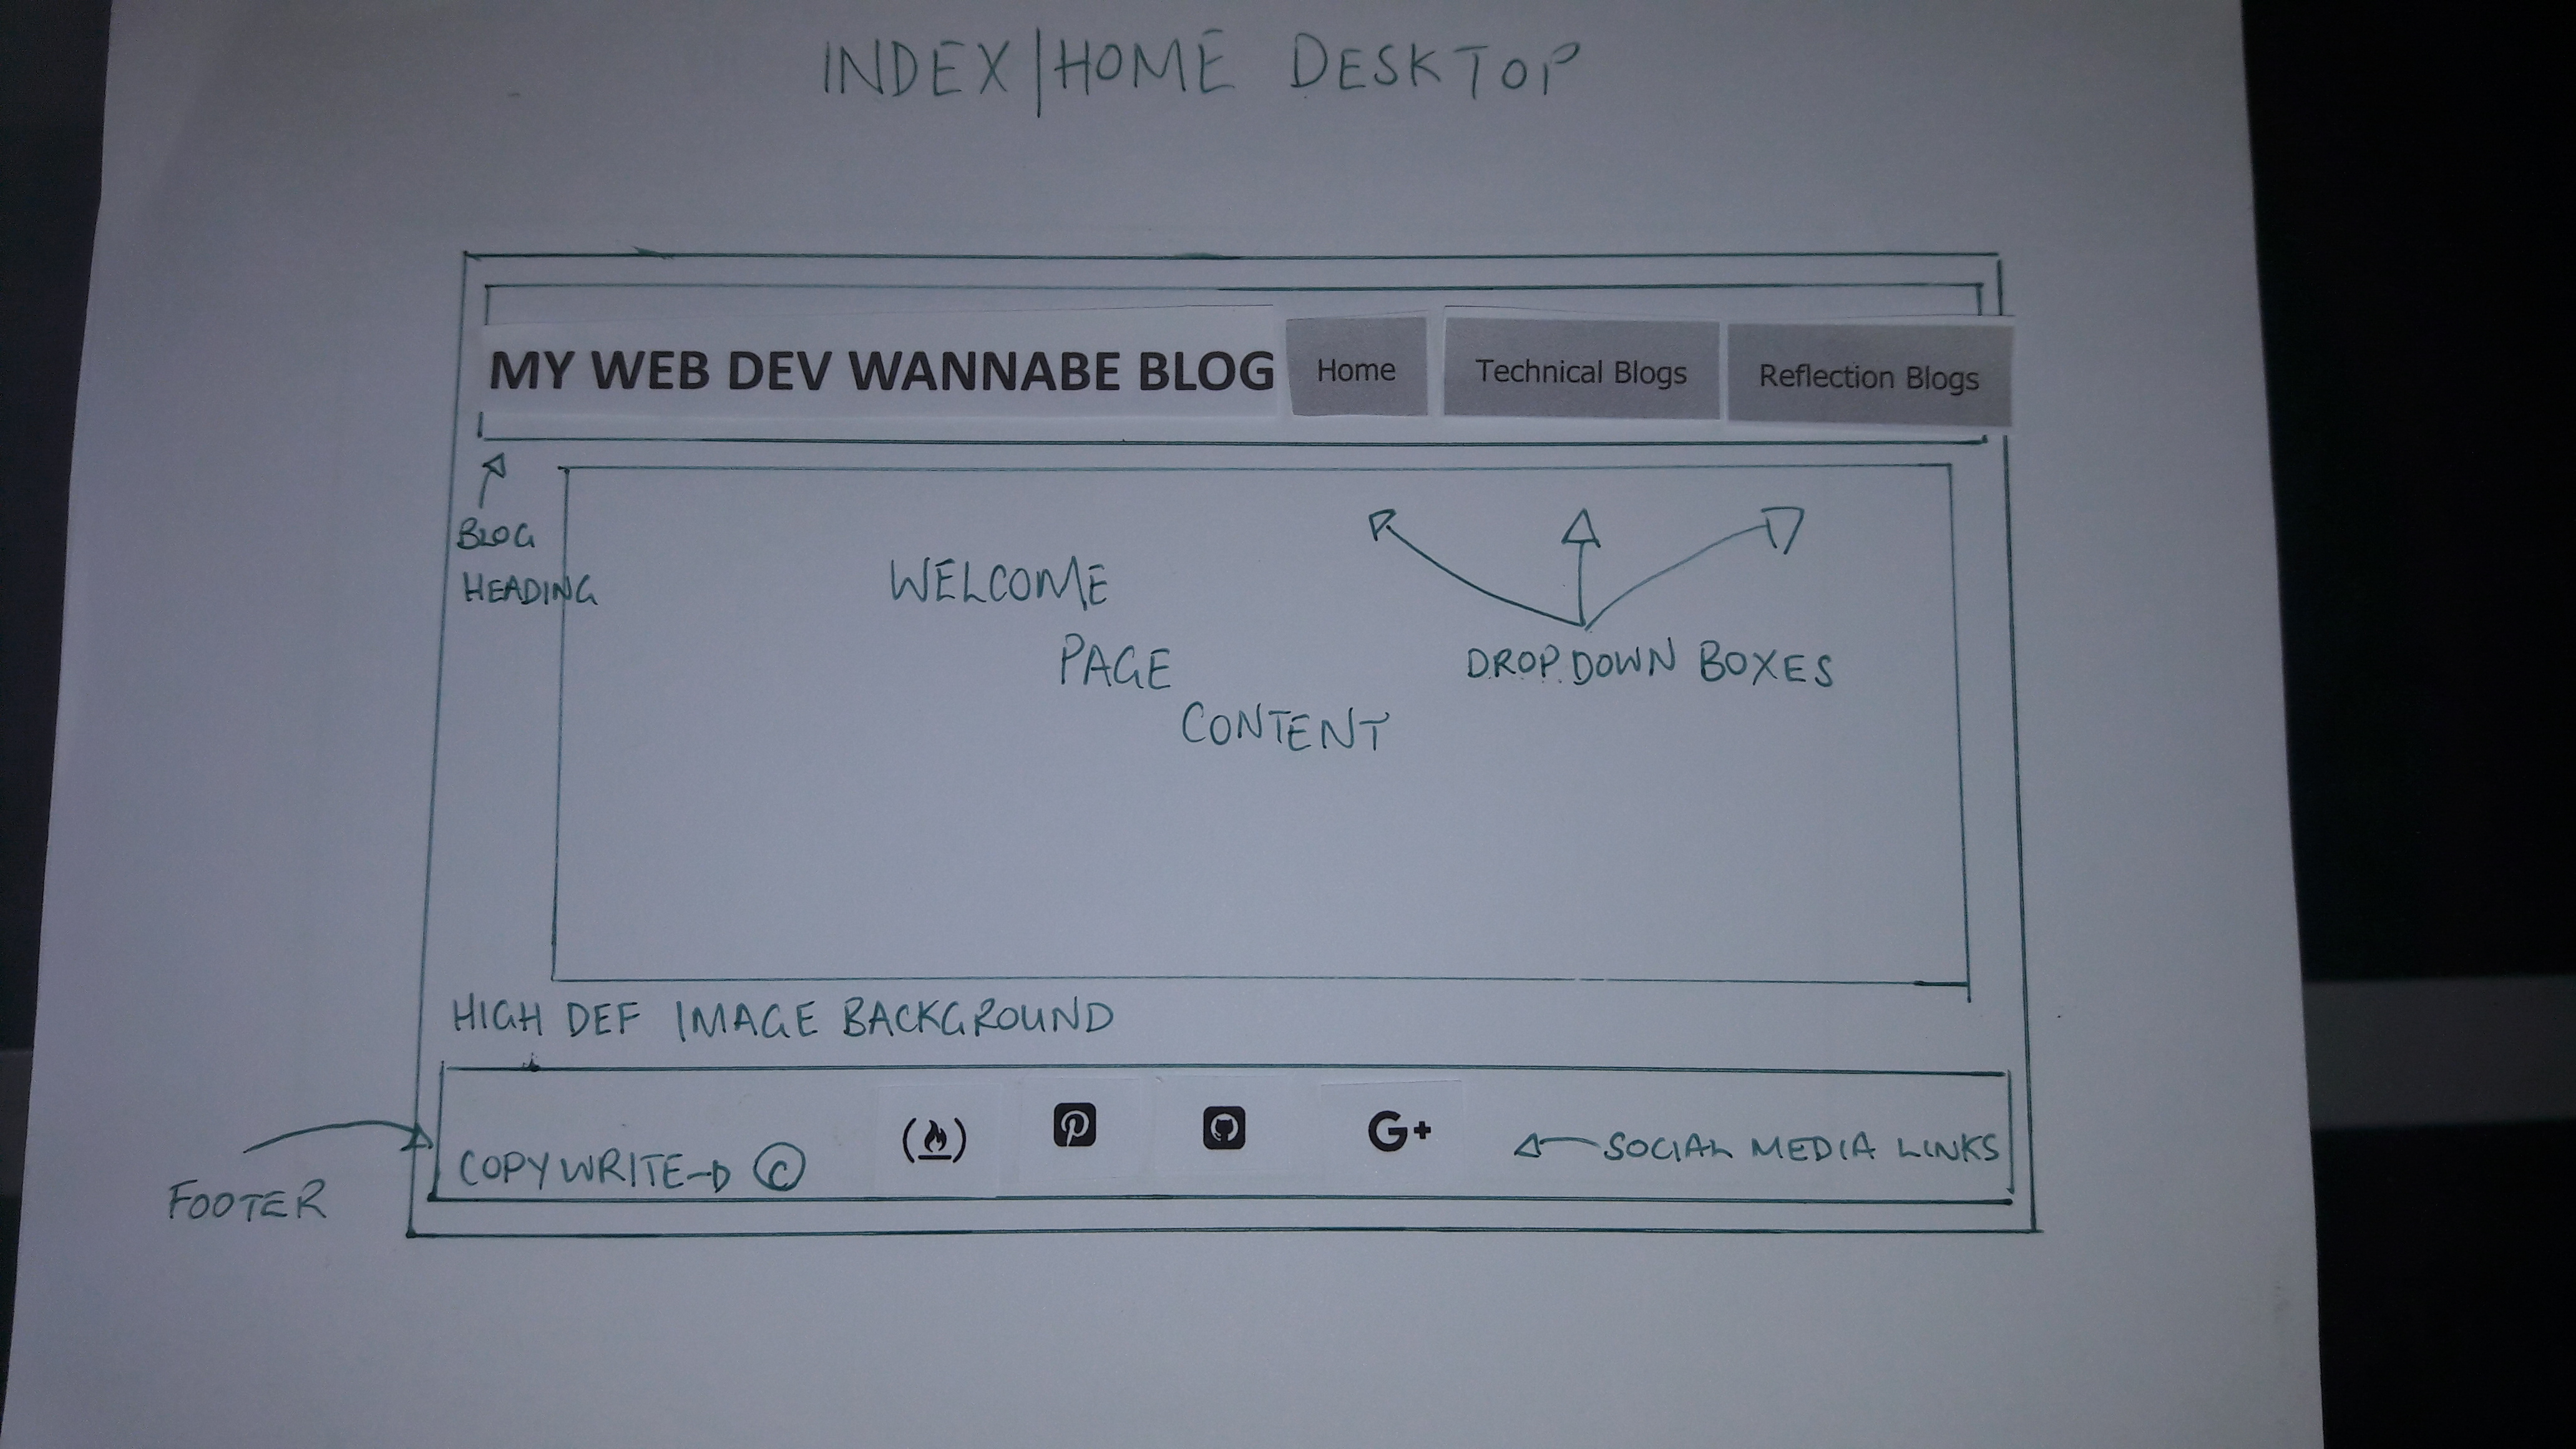 INDEX|HOME DESKTOP
MY WEB DEV WANNABE BLOG Home Technical Blogs Reflection Blogs
BLOG
HEADING
WELCOME
PAGE
CONTENT
DROP.DOWN BOXES
HIGH DEF IMAGE BACKGROUND
FOOTER
COPYWRITE → ©
G+
SOCIAL MEDIA LINKS